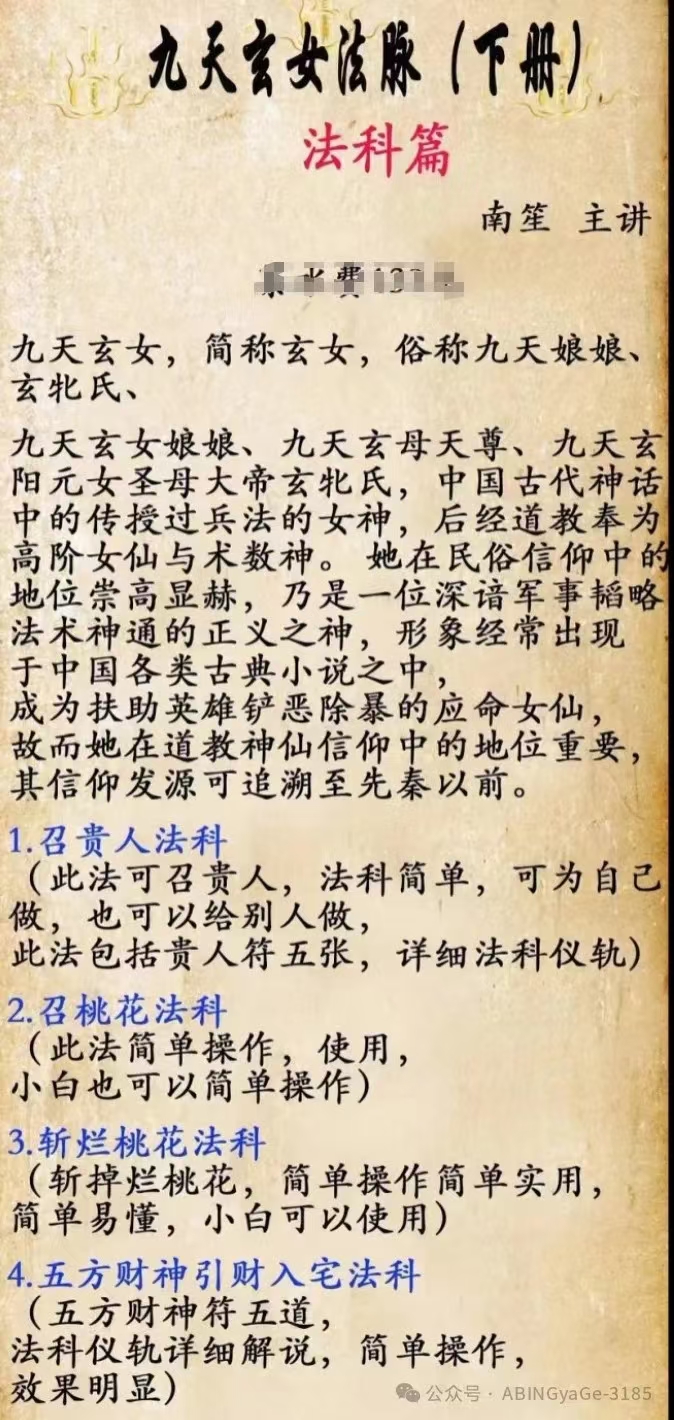 九天玄女法脉（下册）
法科篇
南笙 主讲
九天玄女，简称玄女，俗称九天娘娘、
玄牝氏、
九天玄女娘娘、九天玄母天尊、九天玄
阳元女圣母大帝玄牝氏，中国古代神话
中的传授过兵法的女神，后经道教奉为
高阶女仙与术数神。 她在民俗信仰中的
地位崇高显赫，乃是一位深谙军事韬略
法术神通的正义之神，形象经常出现
于中国各类古典小说之中，
成为扶助英雄铲恶除暴的应命女仙，
故而她在道教神仙信仰中的地位重要，
其信仰发源可追溯至先秦以前。
1.召贵人法科
（此法可召贵人，法科简单，可为自己
做，也可以给别人做，
此法包括贵人符五张，详细法科仪轨）
2.召桃花法科
（此法简单操作，使用，
小白也可以简单操作）
3.斩烂桃花法科
（斩掉烂桃花，简单操作简单实用，
简单易懂，小白可以使用）
4.五方财神引财入宅法科
（五方财神符五道，
法科仪轨详细解说，简单操作，
效果明显）
公众号 · ABINGyaGe-3185